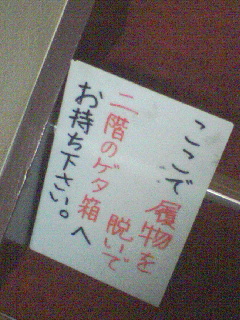 ここで履物を
脱いで
二階のゲタ箱へ
お持ち下さい。